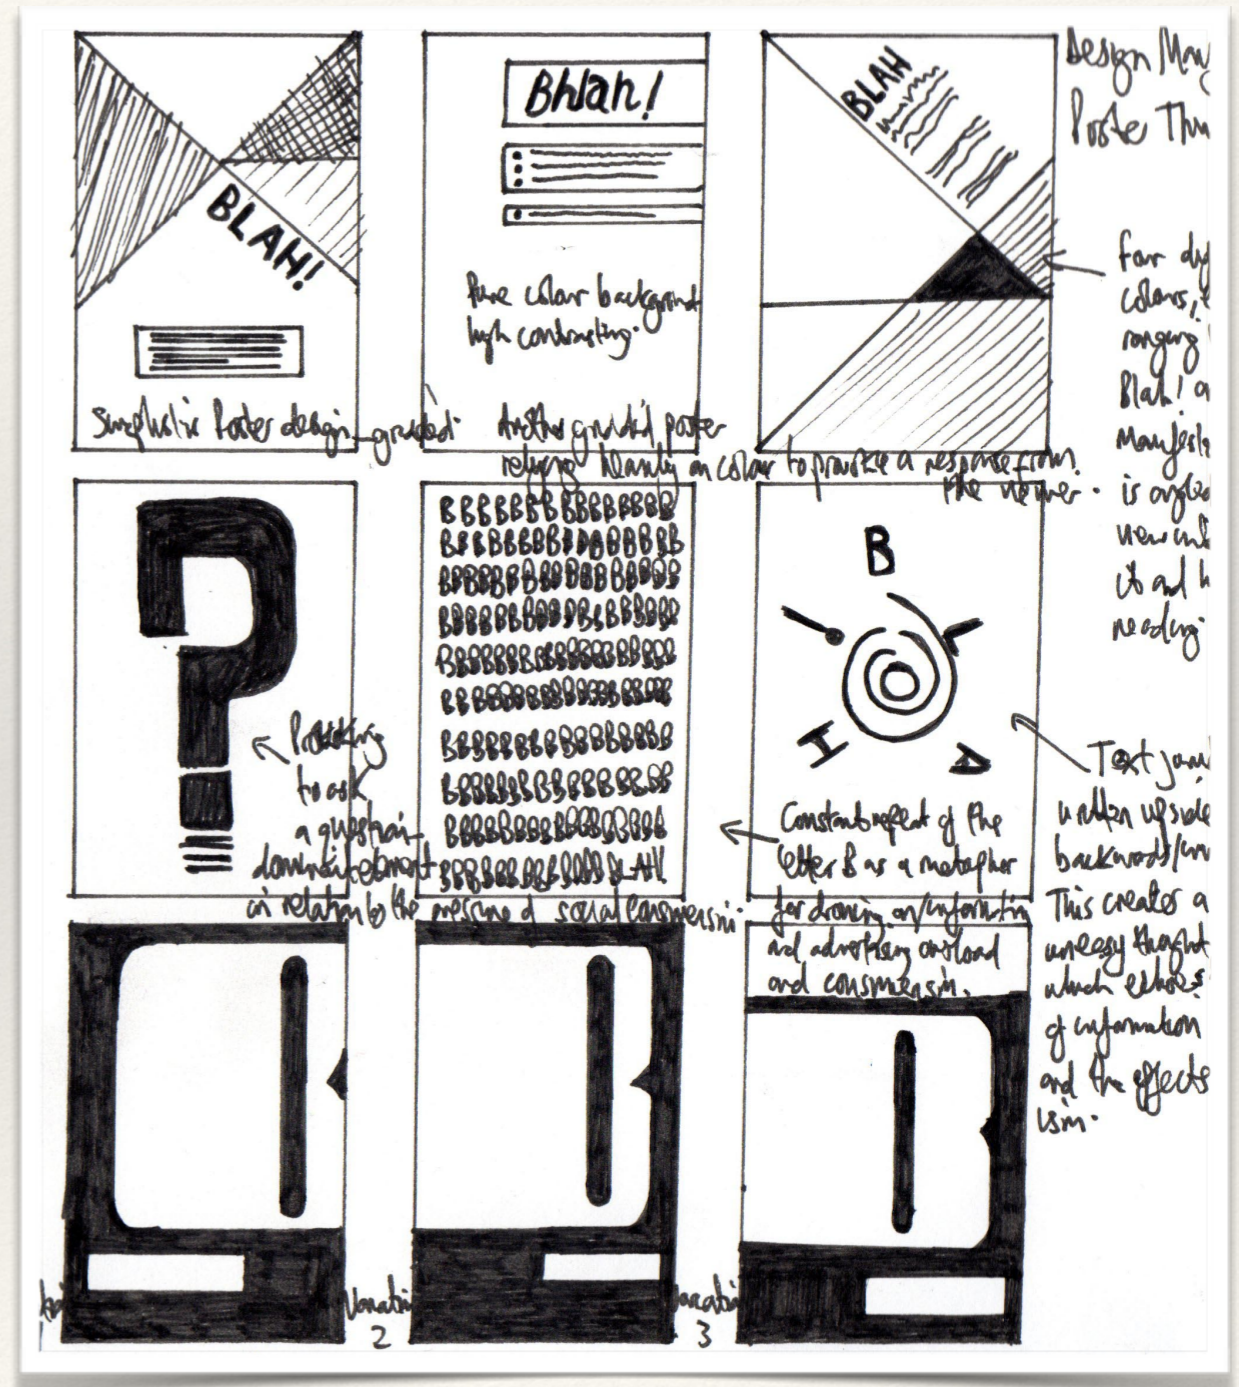 Design Man
Poster Thu
BLAH!
Simplistic Poster design - gridded.
Bhlah!
Pure colour background
high contrasting.
Another gridded poster
relying heavily on colour to provoke a response from
the viewer.
BLAH
Four
colours,
ranging
Blah! a
Manifesto
is angled
view
it and
reading.
Provoking
to ask
a question
dominant element
in relation to the pressure of social consumerism.
BBBBBBBBBBBBBB
BBBBBBBBBBBBBB
BBBBBBBBBBBBBB
BBBBBBBBBBBBBB
BBBBBBBBBBBBBB
BBBBBBBBBBBBBB
BBBBBBBBBBBBBB
BBBBBBBBBBBBBB
BBBBBBBBBBBBBB
BLAH!
B
L
A
H
!
Constant repeat of the
letter B as a metaphor
for droning on/information
and advertising overload
and consumerism.
Text
written upside
backwards/
This creates a
uneasy thought
which echoes
of information
and the effects
ism.
Variation
2
Variation
3